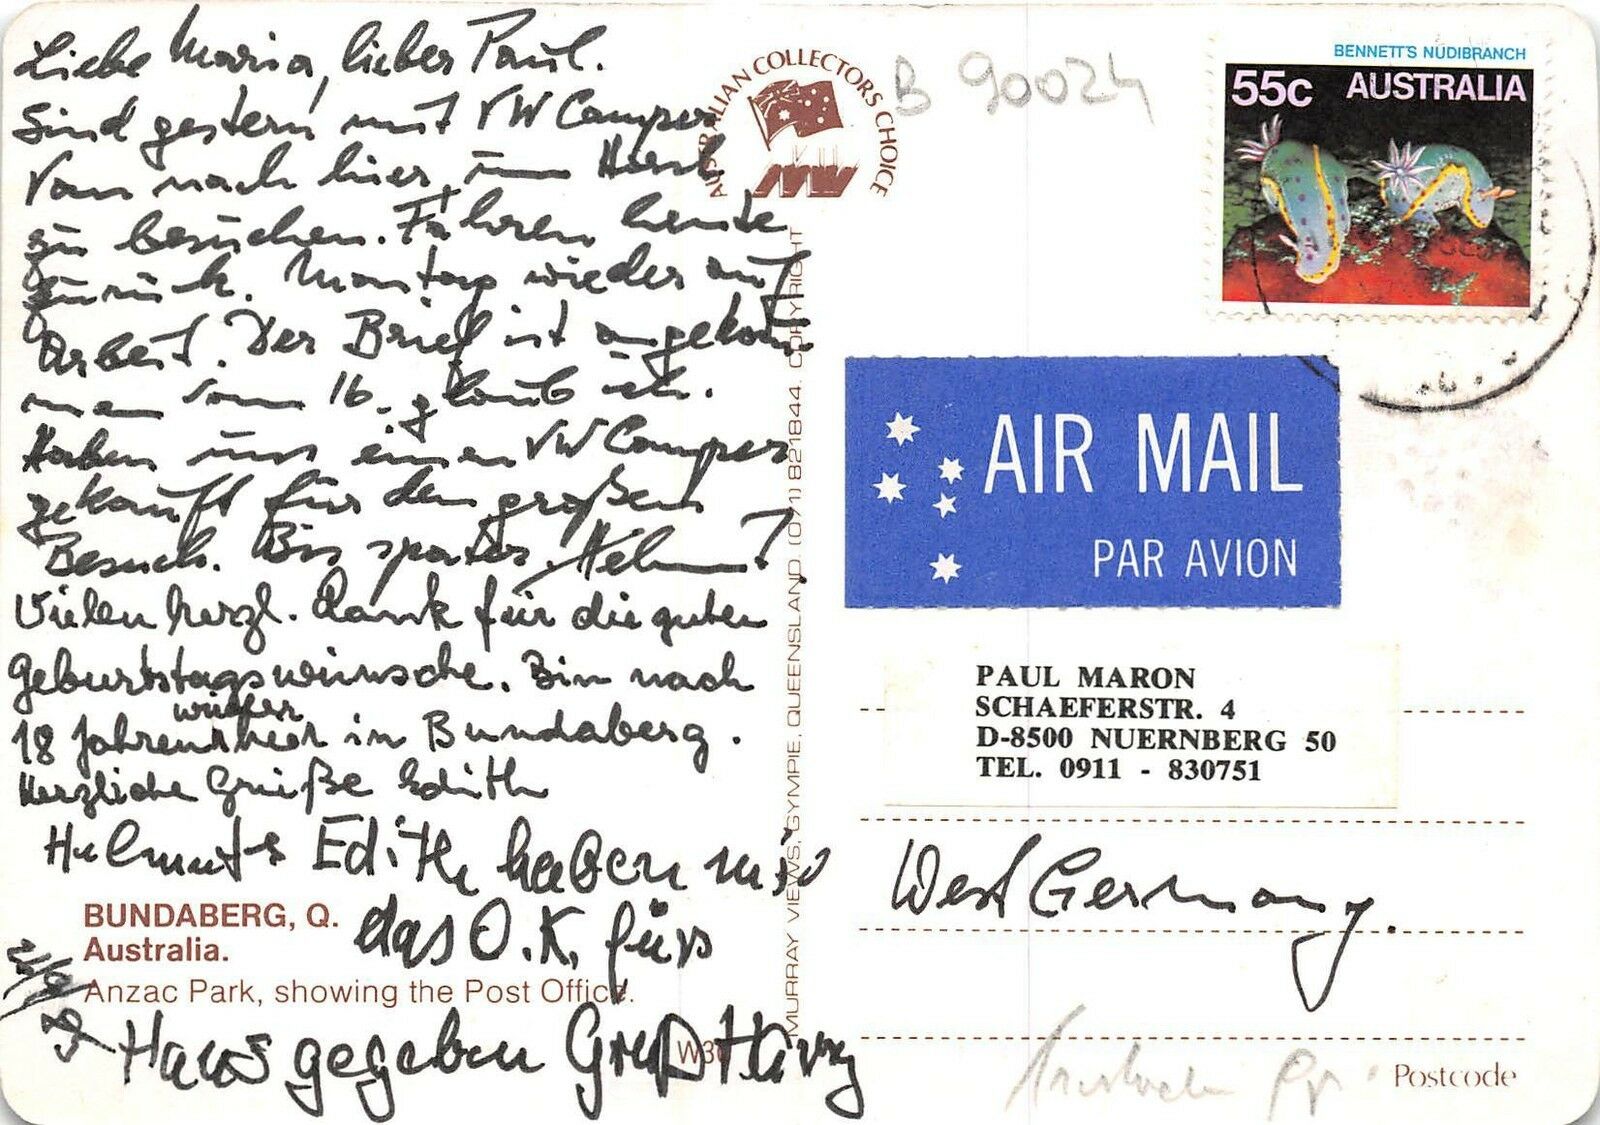 Liebe Maria, lieber Paul.
Sind gestern mit VW Camper
von nach hier, um Horst
zu besuchen. Fahren heute
zurück. Montag wieder auf
Arbeit. Der Brief ist angekom
men vom 16. glaub ich.
Haben uns einen VW Camper
gekauft für den großen
Besuch. Bis später. Helmut
Vielen herzl. Dank für die guten
Geburtstagswünsche. Bin nach
18 Jahren wieder hier in Bundaberg.
Herzliche Grüße Edith
Helmut & Edith haben mir
das O.K. fürs
Haus gegeben Gruß Harry
BUNDABERG, Q.
Australia.
Anzac Park, showing the Post Office.
W30
AUSTRALIAN COLLECTORS CHOICE
MURRAY VIEWS, GYMPIE, QUEENSLAND. (071) 821844. COPYRIGHT
B 90024
BENNETT'S NUDIBRANCH
55c AUSTRALIA
AIR MAIL
PAR AVION
PAUL MARON
SCHAEFERSTR. 4
D-8500 NUERNBERG 50
TEL. 0911 - 830751
West Germany.
Postcode